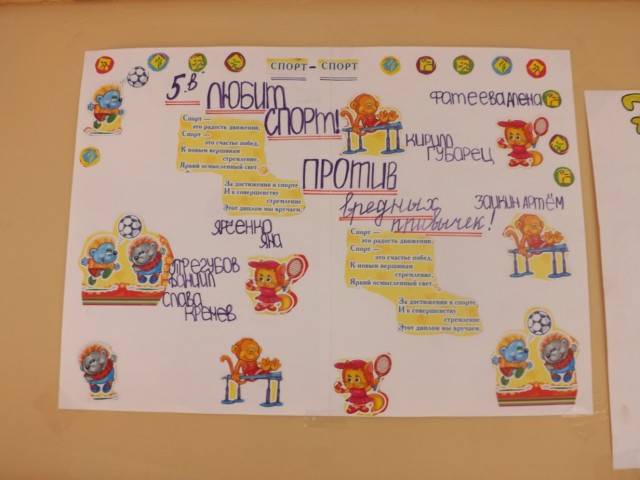 СПОРТ - СПОРТ
5.в. ЛЮБИТ
СПОРТ!
ПРОТИВ
вредных
привычек!
Фатеева Алена
Кирилл
Губарец
Заикин Артём
Ярсенко
Яна
Отрегубов
Даниил
Слава
Кречев
Спорт —
это радость движения,
Спорт —
это счастье побед,
К новым вершинам
стремление,
Яркий осмысленный свет.
За достижения в спорте
И к совершенству
стремление
Этот диплом мы вручаем.
Спорт —
это радость движения,
Спорт —
это счастье побед,
К новым вершинам
стремление,
Яркий осмысленный свет.
За достижения в спорте
И к совершенству
стремление
Этот диплом мы вручаем.